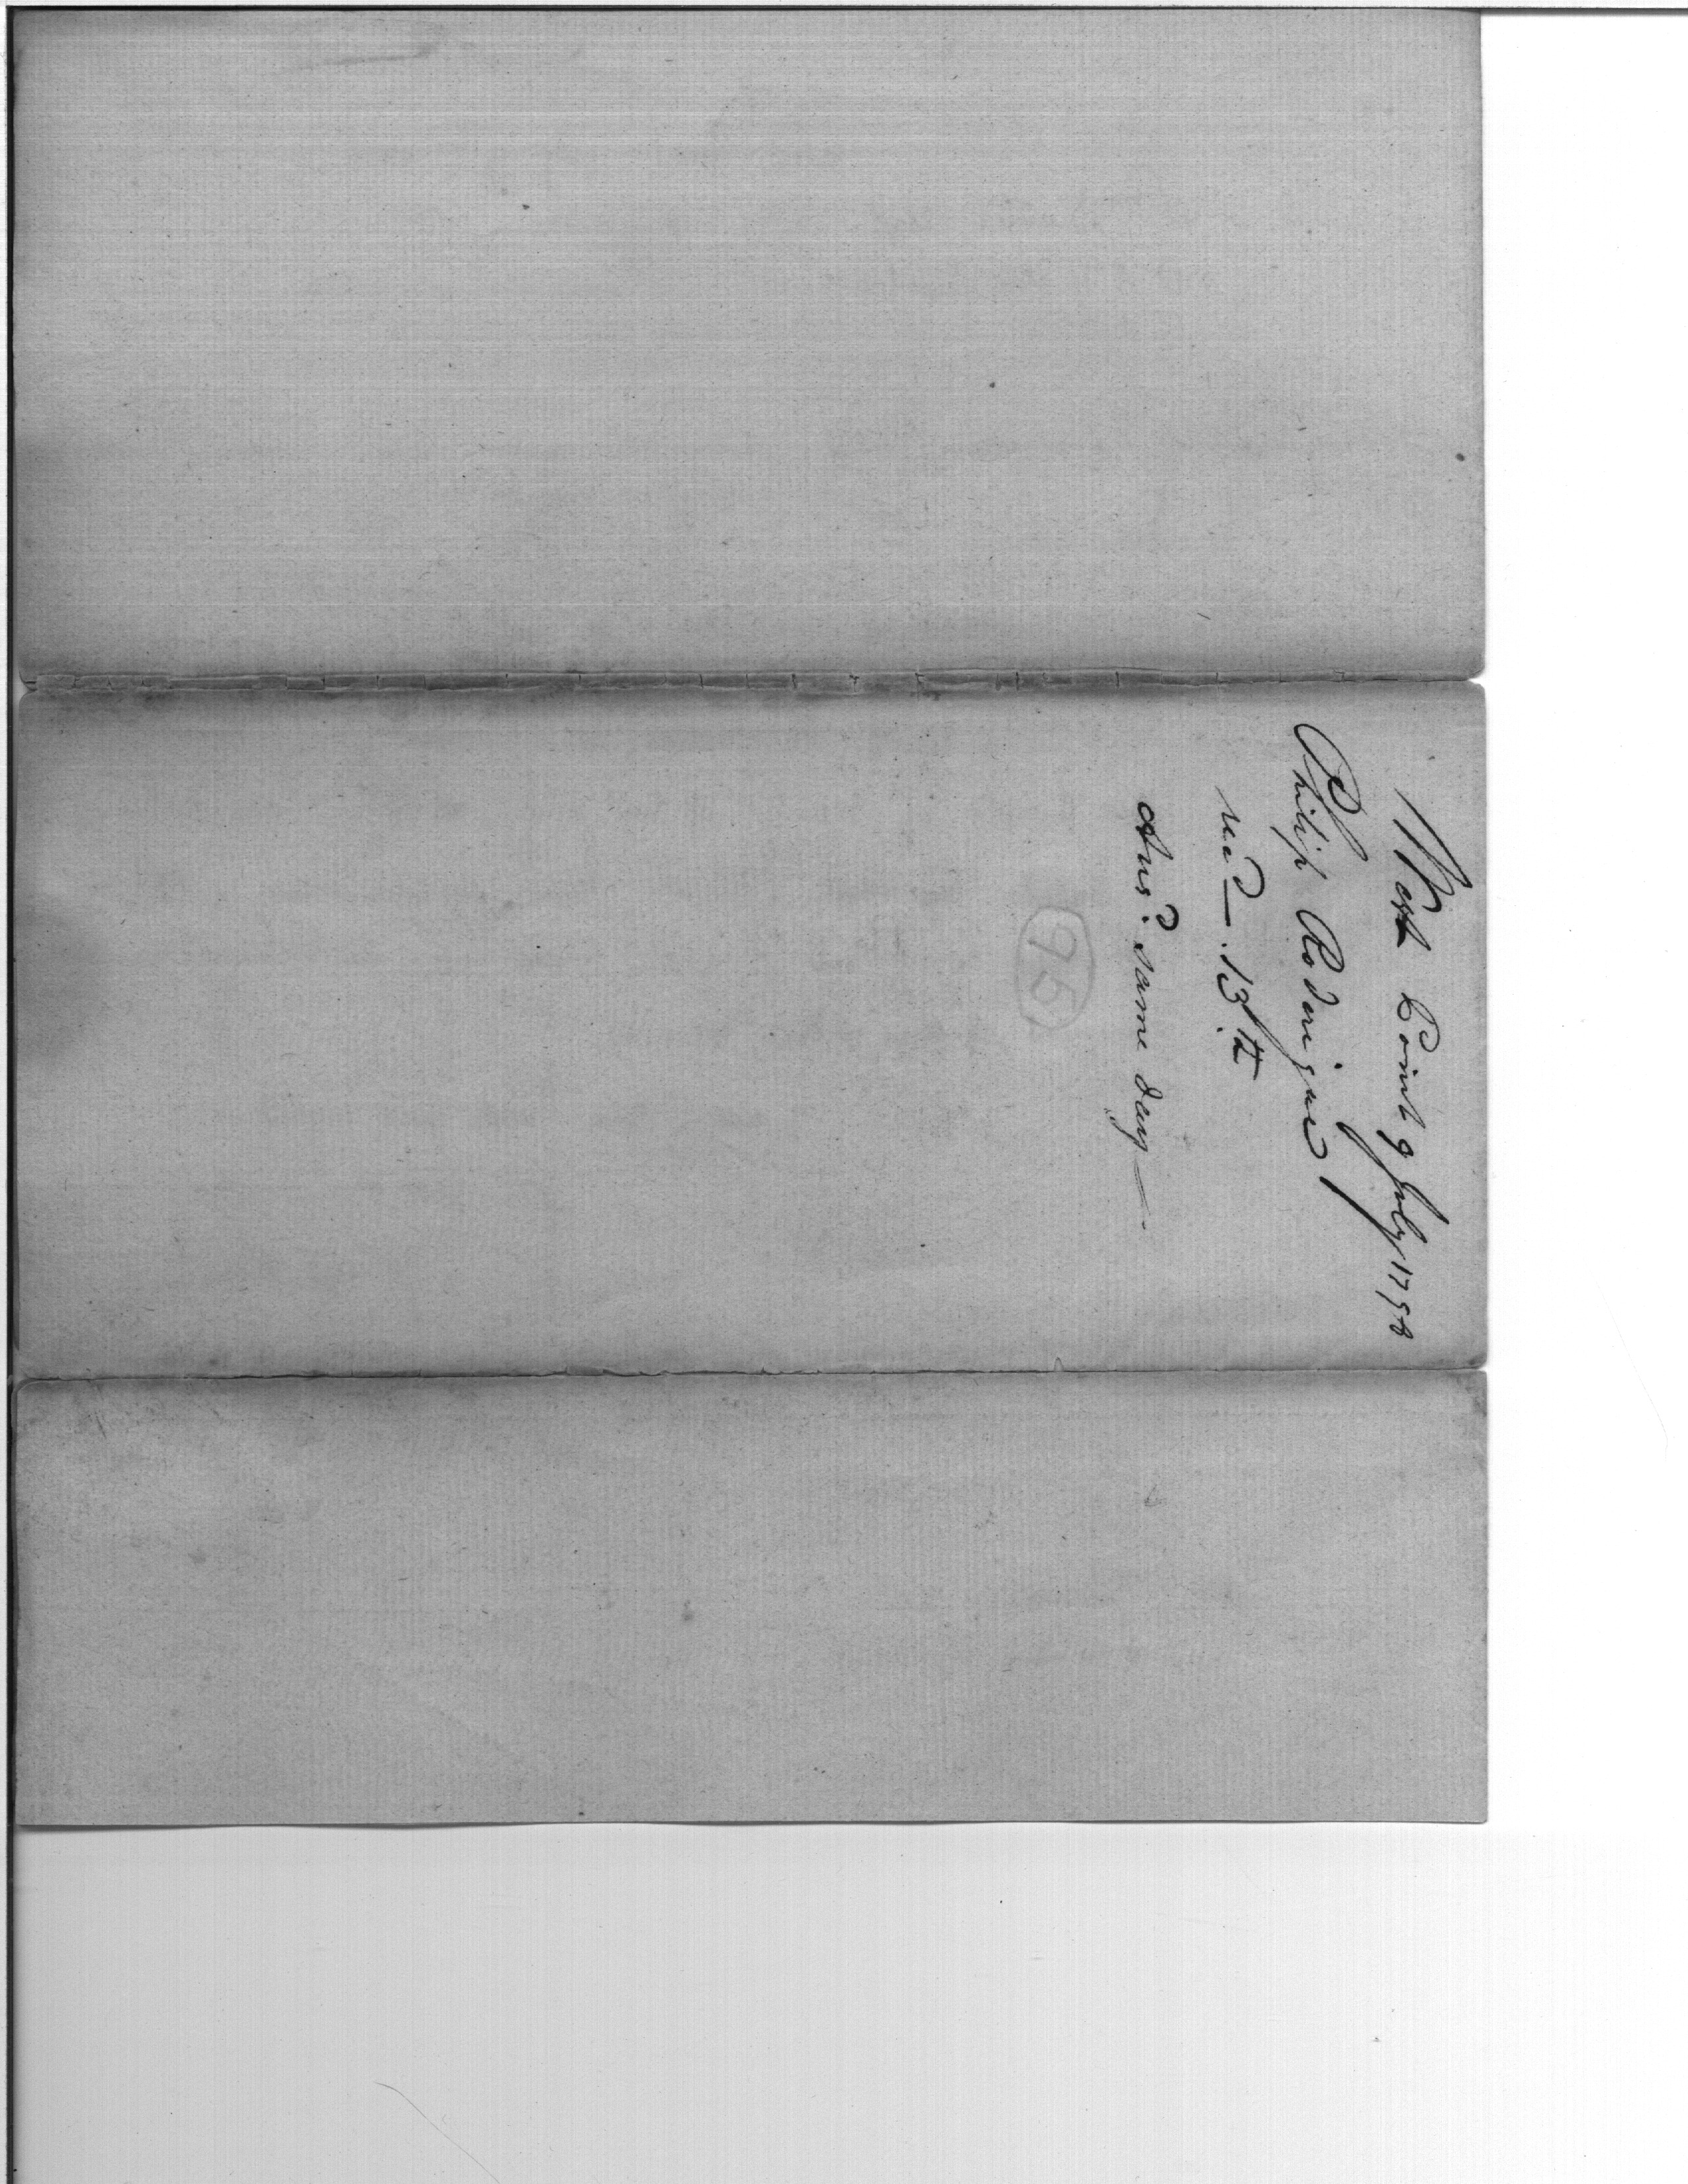 West Point 9 July 1798
Philip Roderigue
recd — 13th
Ansd. same day —
95